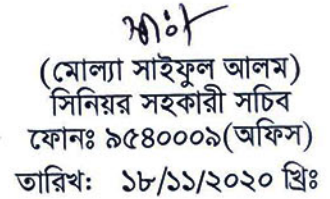 (মোল্যা সাইফুল আলম)
সিনিয়র সহকারী সচিব
ফোনঃ ৯৫৪০০০৯(অফিস)
তারিখঃ ১৮/১১/২০২০ খ্রিঃ